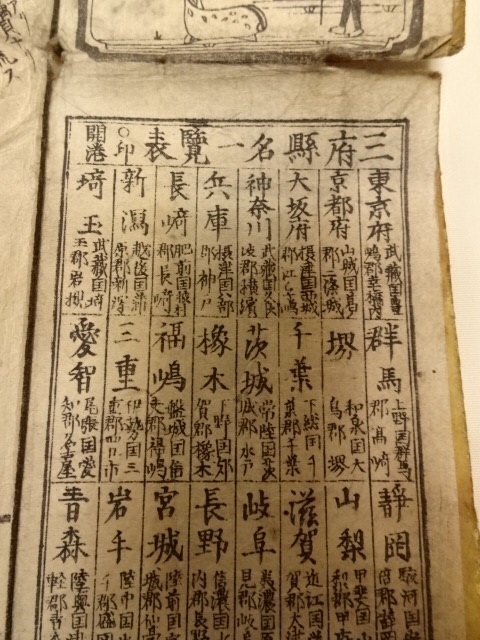 三府縣名一覽表
○印
開港
東京府
武蔵国豊
嶋郡幸橋内
京都府
山城国葛
郡二條城
大坂府
摂津国西成
郡江ノ嶋
神奈川
武蔵国久良
岐郡横濱
兵庫
摂津国八部
郡神戸
長崎
肥前国彼杵
郡長崎
新潟
越後国蒲
原郡新潟
埼玉
武蔵国埼
玉郡岩槻
群馬
上野国群馬
郡高崎
堺
和泉国大
鳥郡堺
千葉
下総国千
葉郡千葉
茨城
常陸国茨
城郡水戸
橡木
下野国都
賀郡橡木
福嶋
盤城国信
夫郡福嶋
三重
伊勢国三
重郡四日市
愛智
尾張国愛
知郡名古屋
静岡
駿河国
山梨
甲斐国山
梨郡甲
滋賀
近江国
賀郡大
岐阜
美濃国
見郡岐
長野
信濃国
内郡長
宮城
陸前国
城郡仙
岩手
陸中国
青森
陸奥国
軽郡